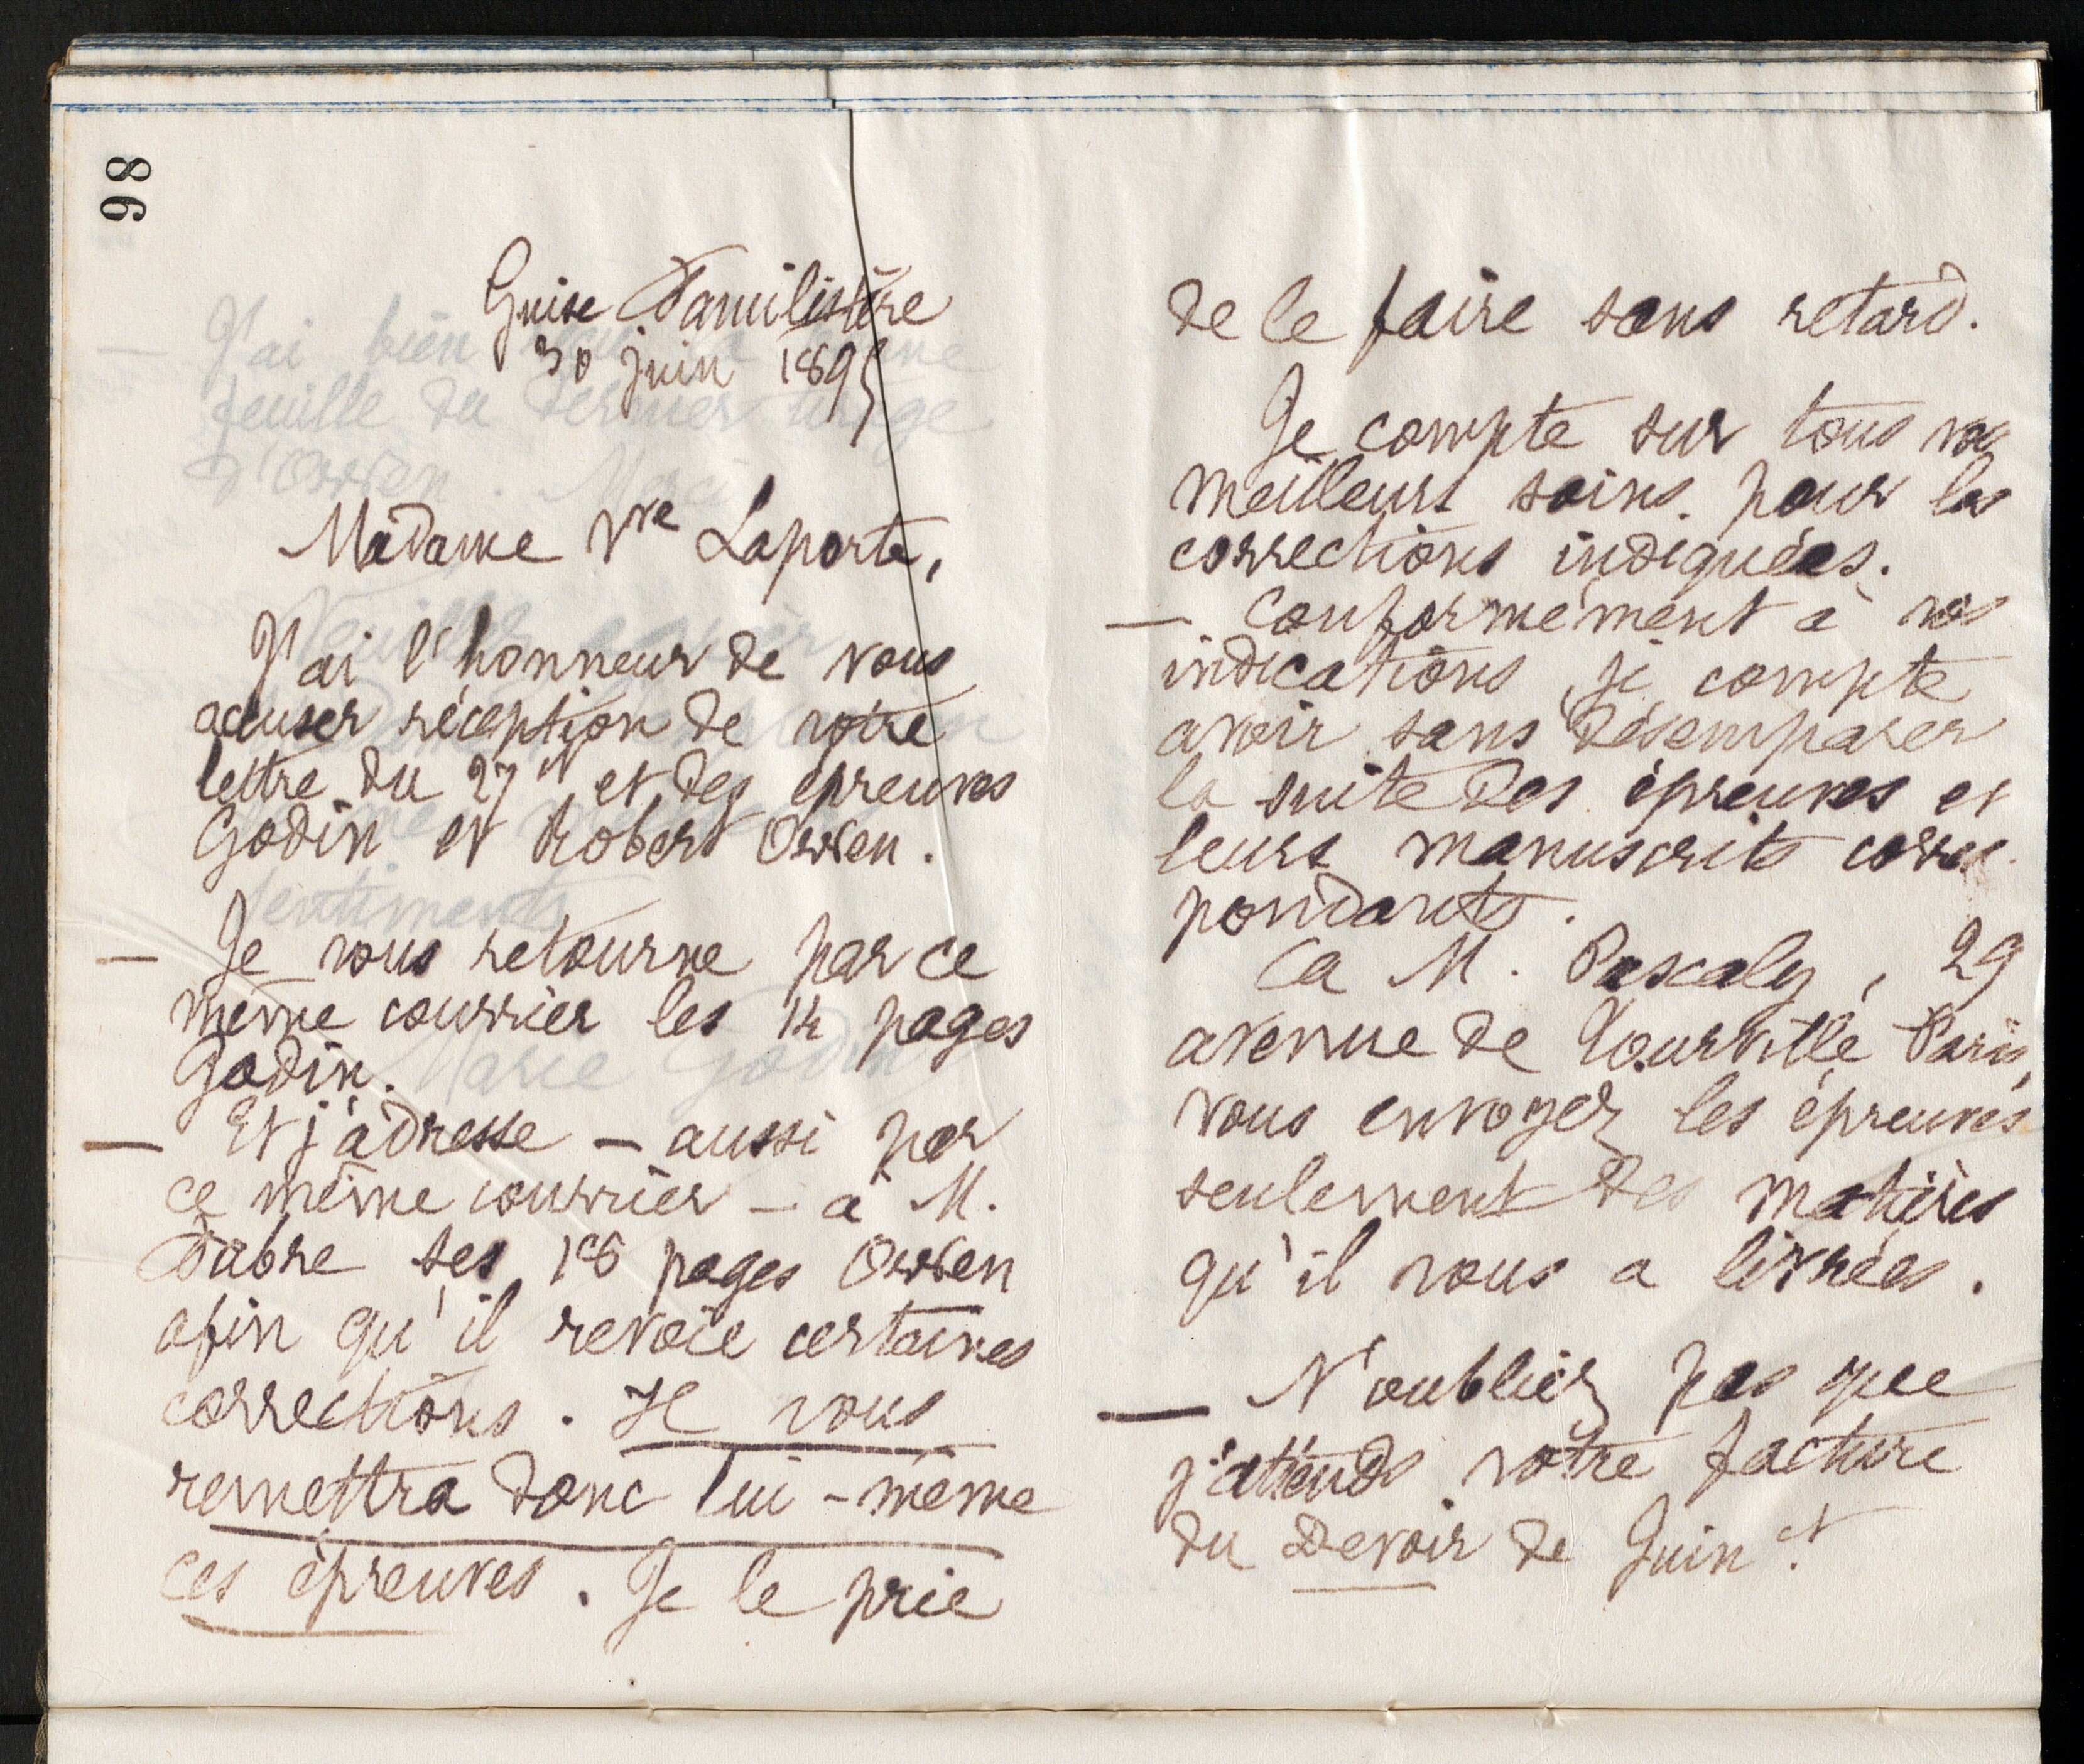 98
Guise Familistère
30 juin 1895
Madame Vve Laporte,
J'ai l'honneur de vous
accuser réception de votre
lettre du 27 ct et des épreuves
Godin et Robert Owen.
— Je vous retourne par ce
même courrier les 14 pages
Godin.
— Et j'adresse — aussi par
ce même courrier — à M.
Fabre ses 16 pages Owen
afin qu'il revoie certaines
corrections. Il vous
remettra donc lui-même
ces épreuves. Je le prie
de le faire sans retard.
Je compte sur tous vos
meilleurs soins pour les
corrections indiquées.
— Conformément à vos
indications, je compte
avoir sans désemparer
la suite des épreuves et
leurs manuscrits corres-
pondants.
à M. Pascaly, 29
avenue de Tourville Paris,
vous envoyez les épreuves
seulement des matières
qu'il vous a livrées.
— N'oubliez pas que
j'attends votre facture
du Devoir de Juin ct.
J'ai bien
feuille du dernier tirage
d'Owen. Merci
Veuillez
sentiments
Marie Godin